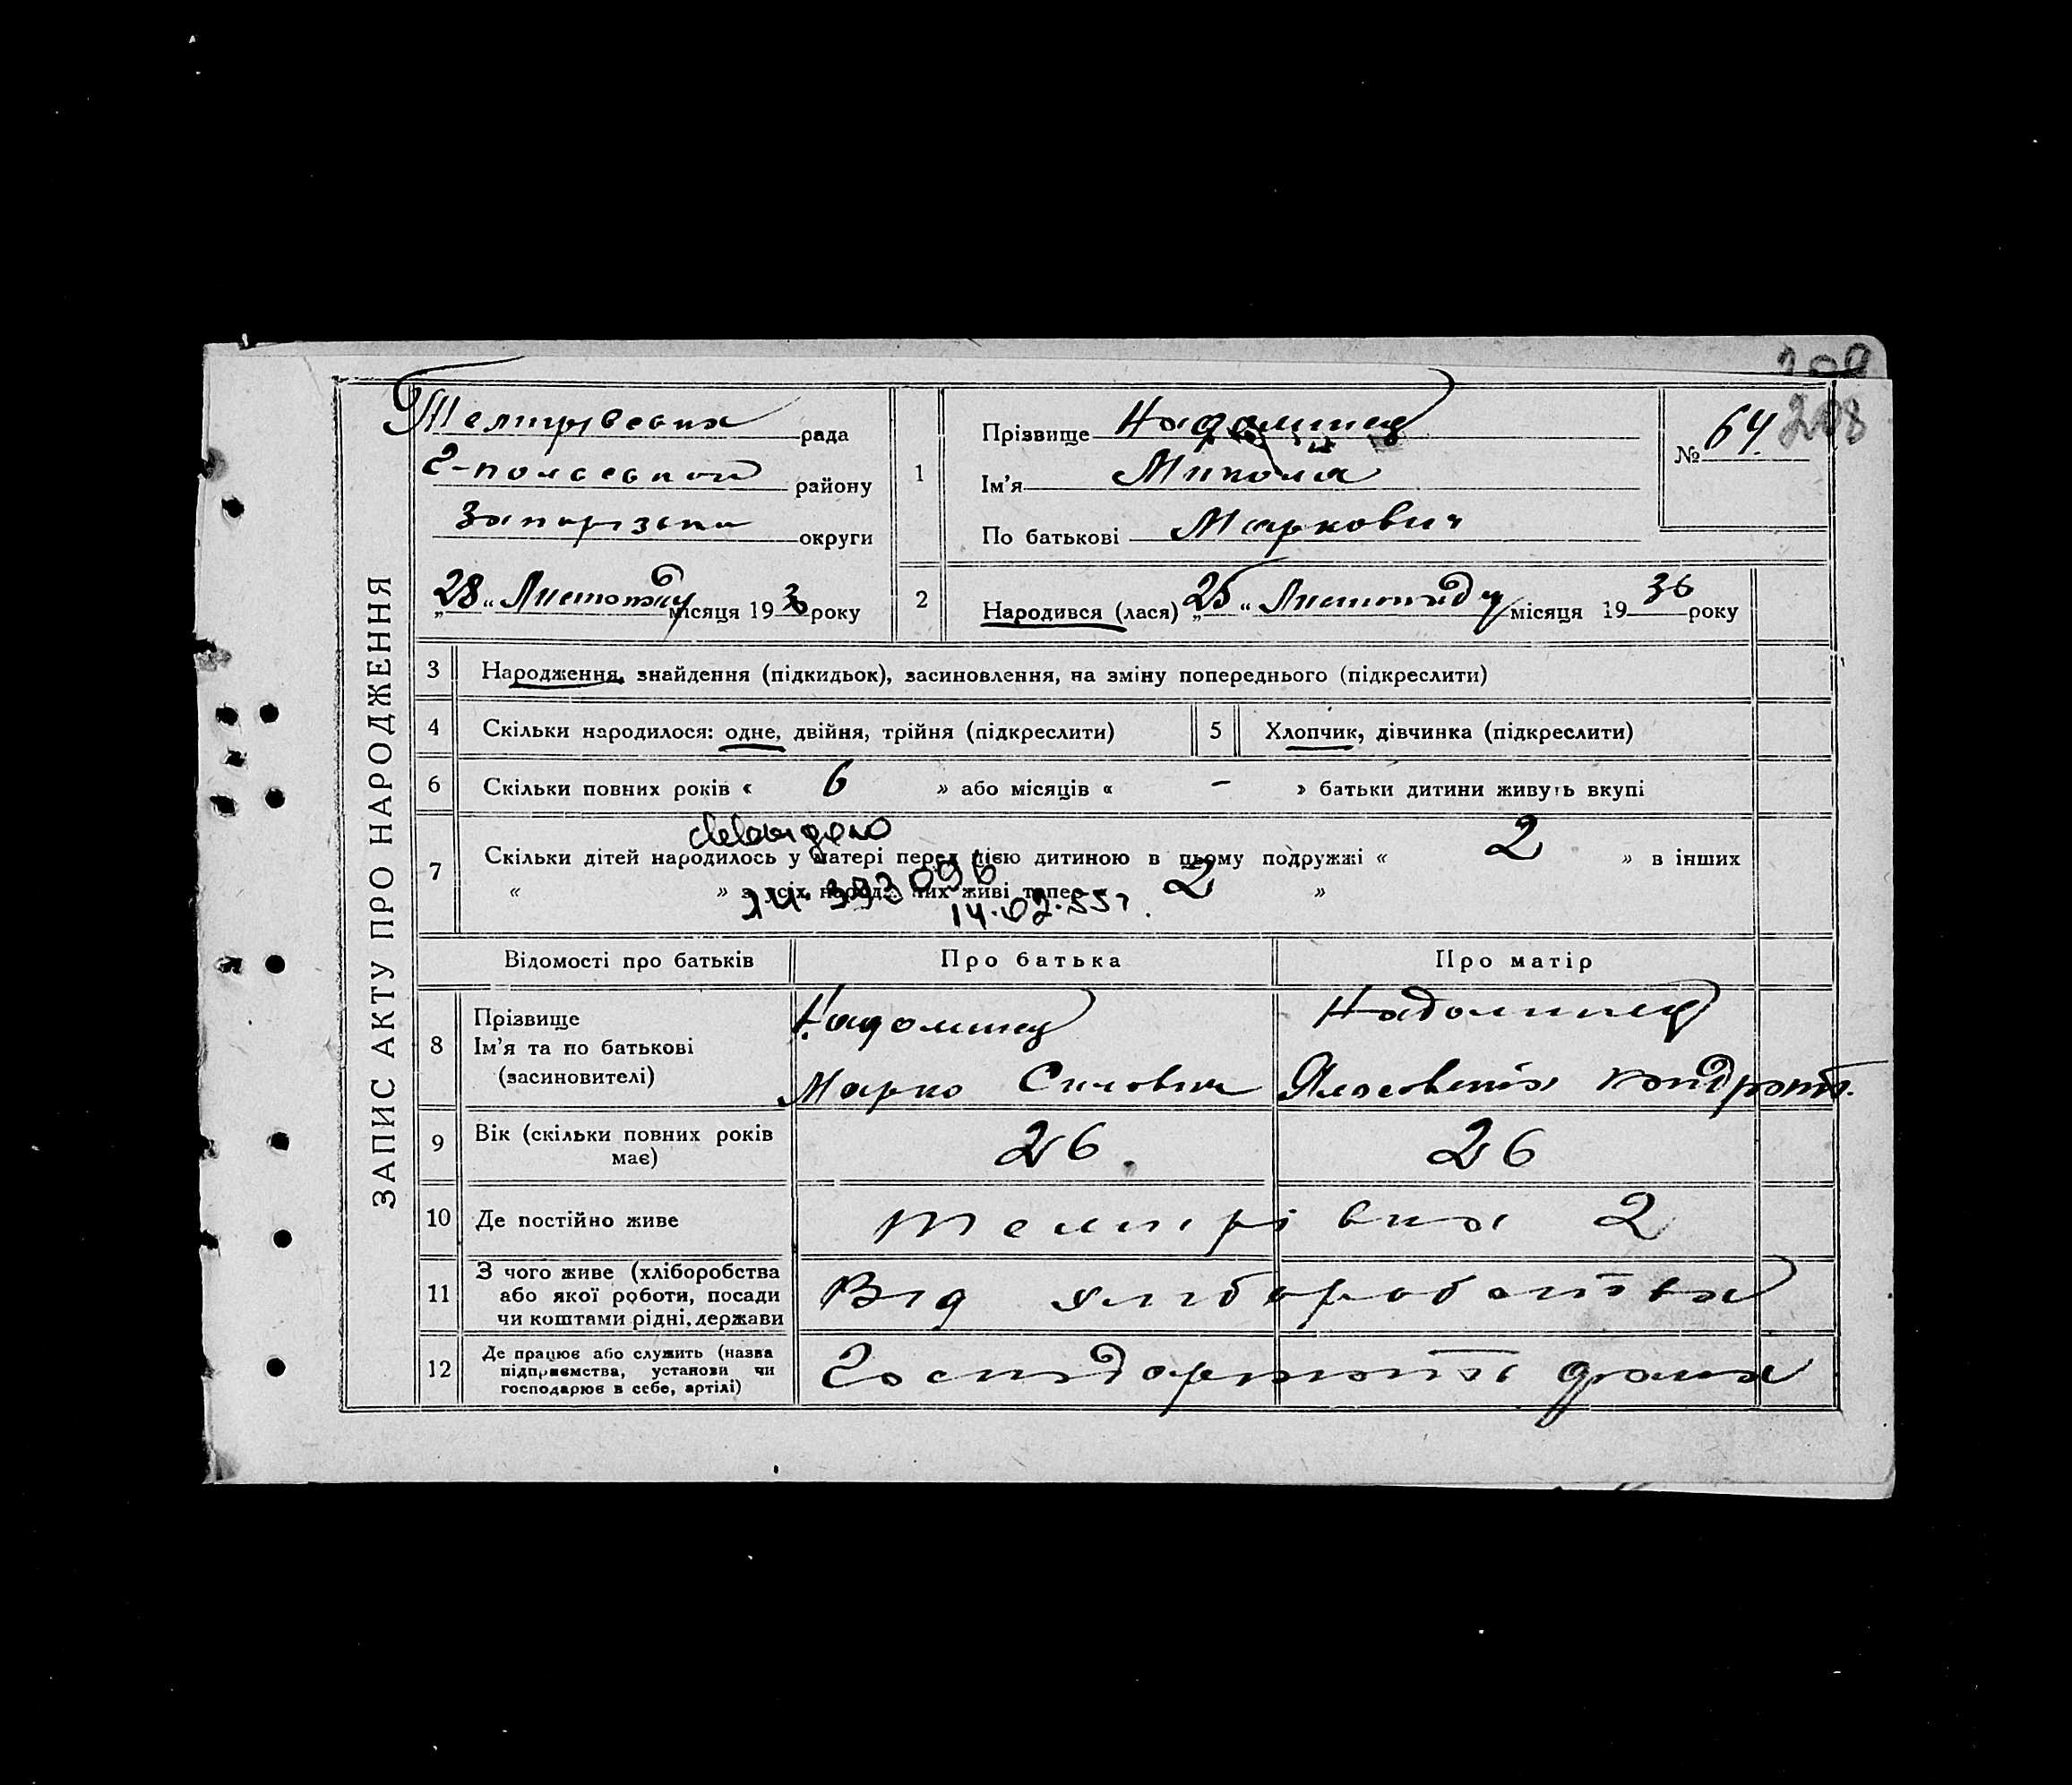 209
208
ЗАПИС АКТУ ПРО НАРОДЖЕННЯ
рада
Г-польський району
округи
„28“ Листопаду місяця 1930 року
1
Прізвище Надолинец
Ім’я Микола
По батькові Маркович
№ 64.
2
Народився (лася) „25“ Листопаду місяця 1930 року
3 Народження, знайдення (підкидьок), засиновлення, на зміну попереднього (підкреслити)
4 Скільки народилося: одне, двійня, трійня (підкреслити)
5 Хлопчик, дівчинка (підкреслити)
6 Скільки повних років « 6 » або місяців « - » батьки дитини живуть вкупі
7 Скільки дітей народилось у матері перед цією дитиною в цьому подружжі « 2 » в інших
« » з усіх народж. них живі тепер « 2 »
14.02.55 г.
Відомості про батьків
Про батька
Про матір
8 Прізвище
Ім’я та по батькові
(засиновителі)
Надолинец
Марко Силович
Надолинец
Кондрат.
9 Вік (скільки повних років має)
26.
26
10 Де постійно живе
2
11 З чого живе (хліборобства
або якої роботи, посади
чи коштами рідні, держави
Від хліборобства
12 Де працює або служить (назва
підприємства, установи чи
господарює в себе, артілі)